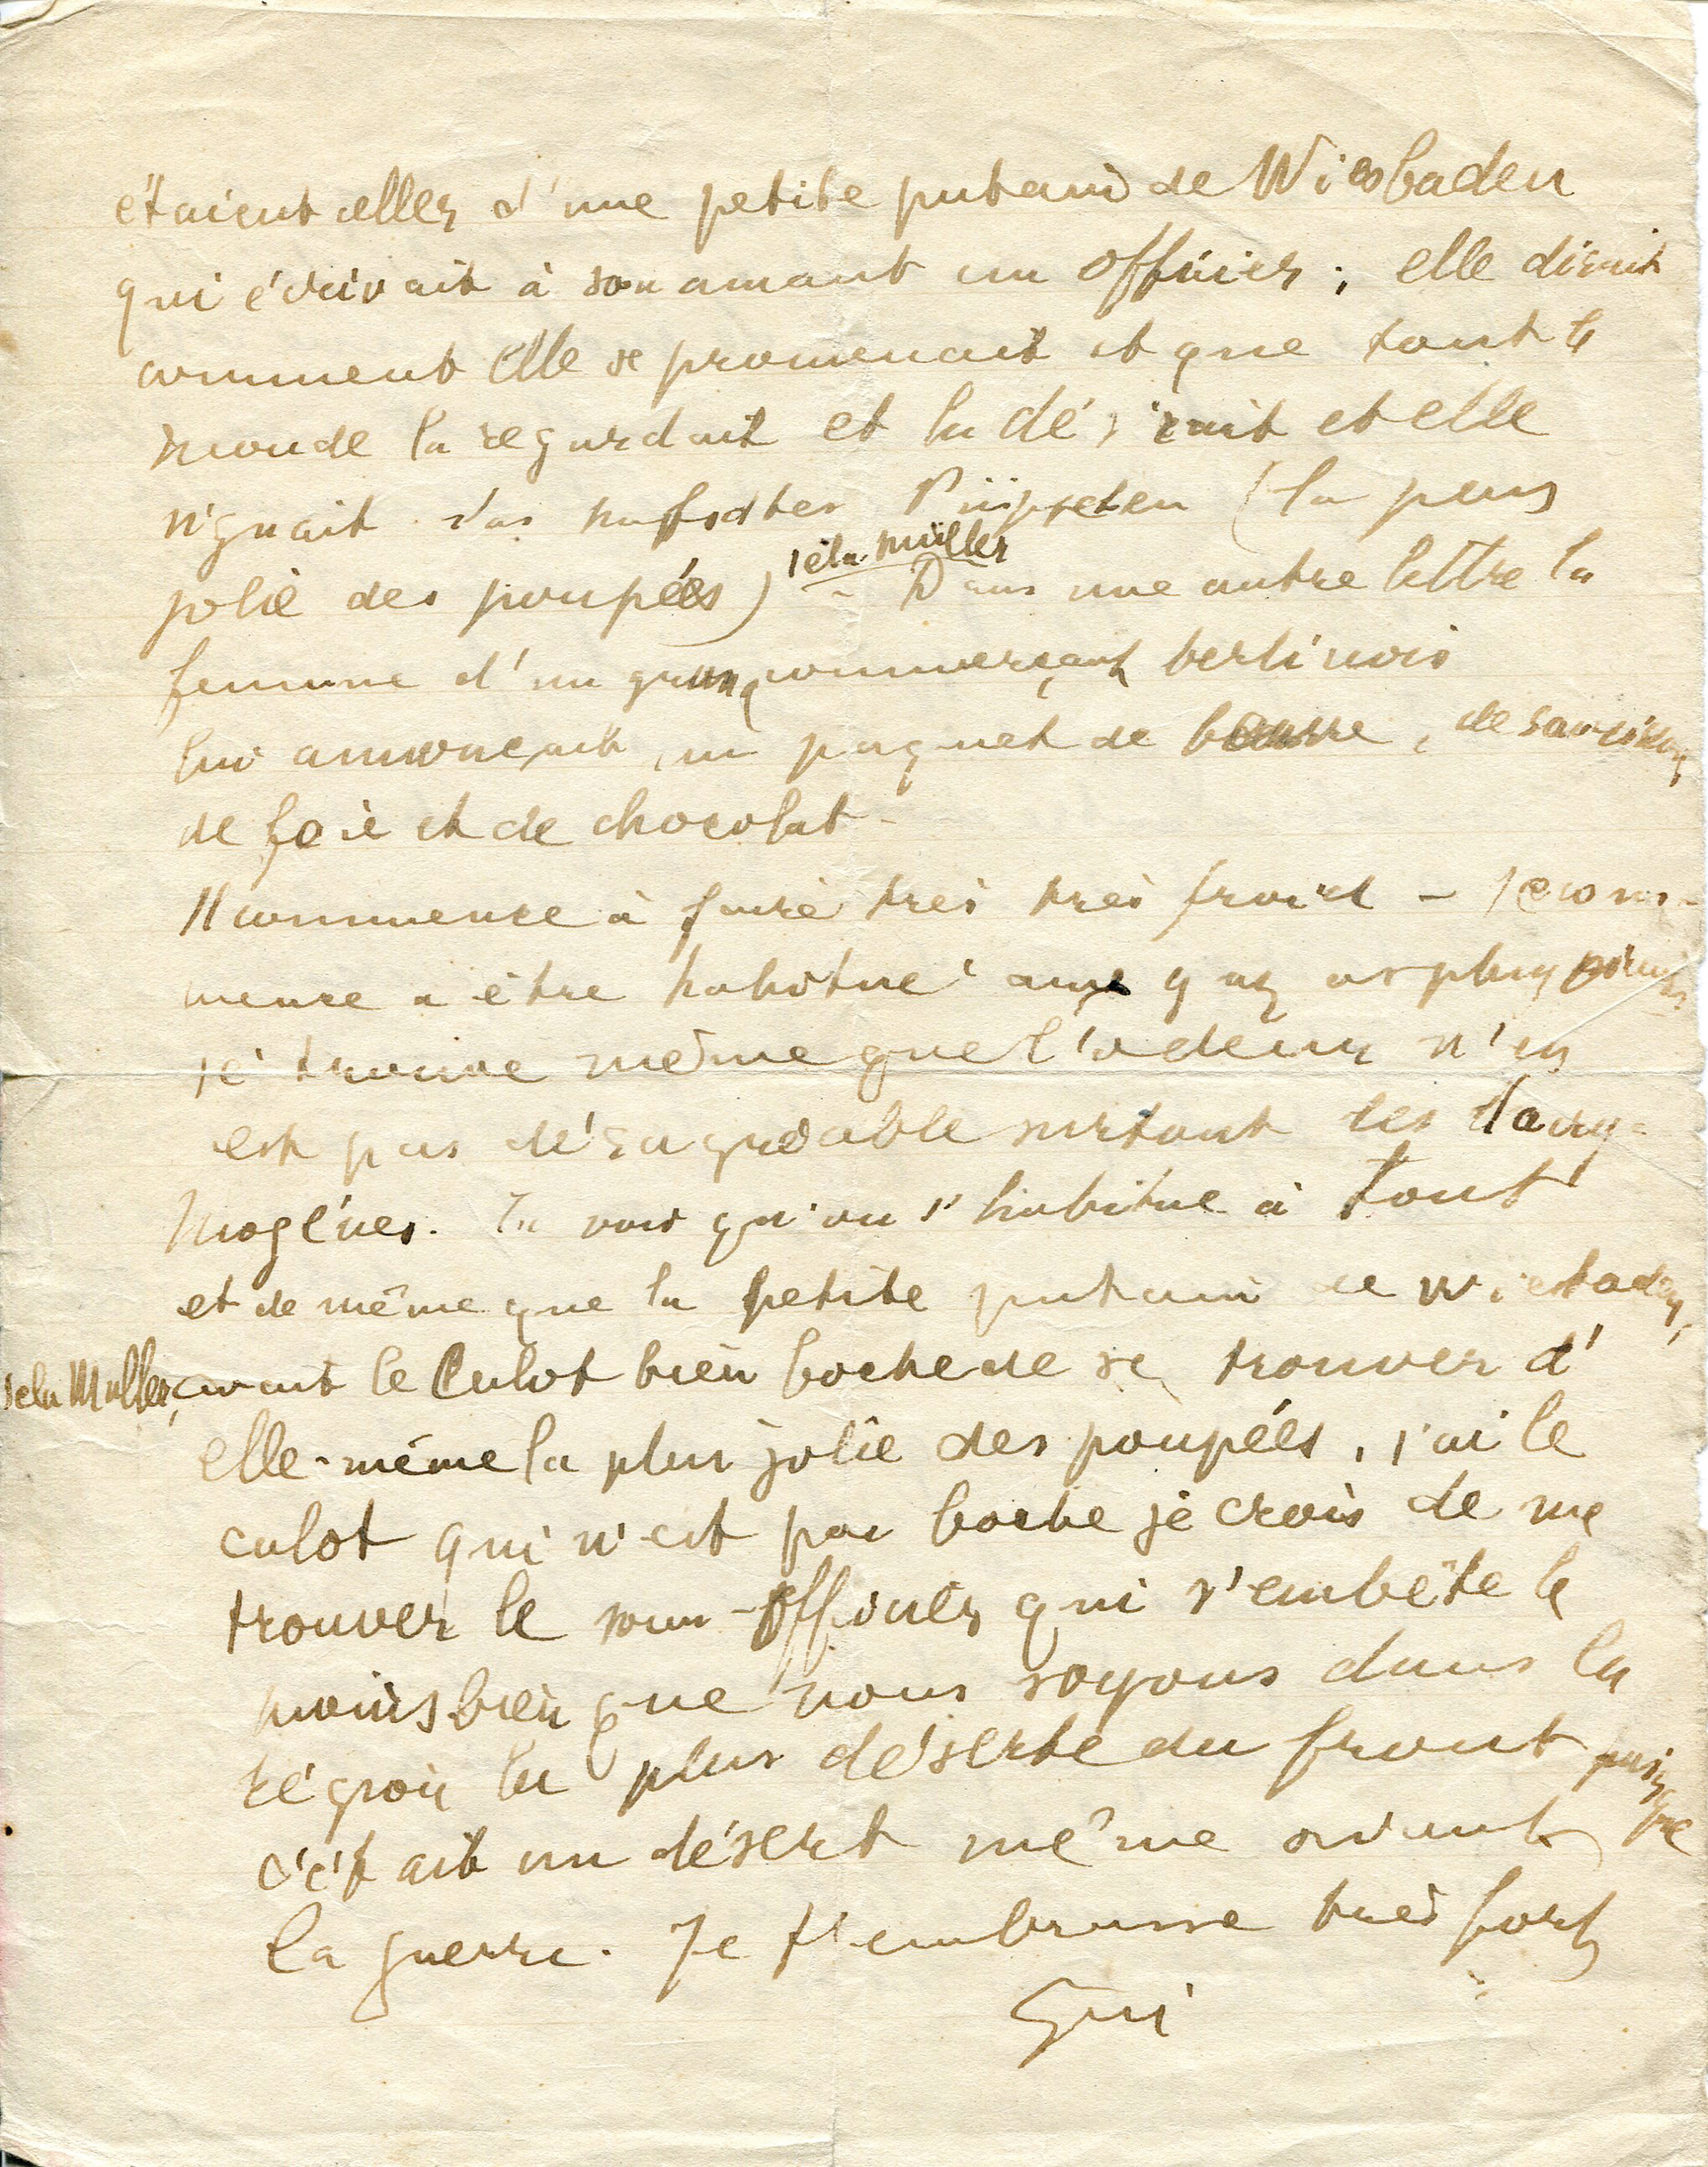 étaient celles d'une petite putain de Wiesbaden
qui écrivait à son amant un officier ; elle disait
comment elle se promenait et que tout le
monde la regardait et la désirait et elle
signait Das Püppchen (la plus
jolie des poupées) Müller - Dans une autre lettre la
femme d'un gros commerçant berlinois
lui annonçait un paquet de beurre, de saucisson
de foie et de chocolat -
Il commence à faire très très froid - Je com-
mence a être habitué aux gaz asphyxiants
je trouve même que l'odeur n'en
est pas désagréable surtout les lacry-
mogènes. Tu vois qu'on s'habitue à tout
et de même que la petite putain de Wiesbaden,
Müller, avait le culot bien boche de se trouver d'
elle-même la plus jolie des poupées, j'ai le
culot qui n'est pas boche je crois de me
trouver le sous-officier qui s'embête le
moins bien que nous soyons dans la
région la plus déserte du front puisque
c'était un désert même avant
la guerre. Je t'embrasse très fort
Gui